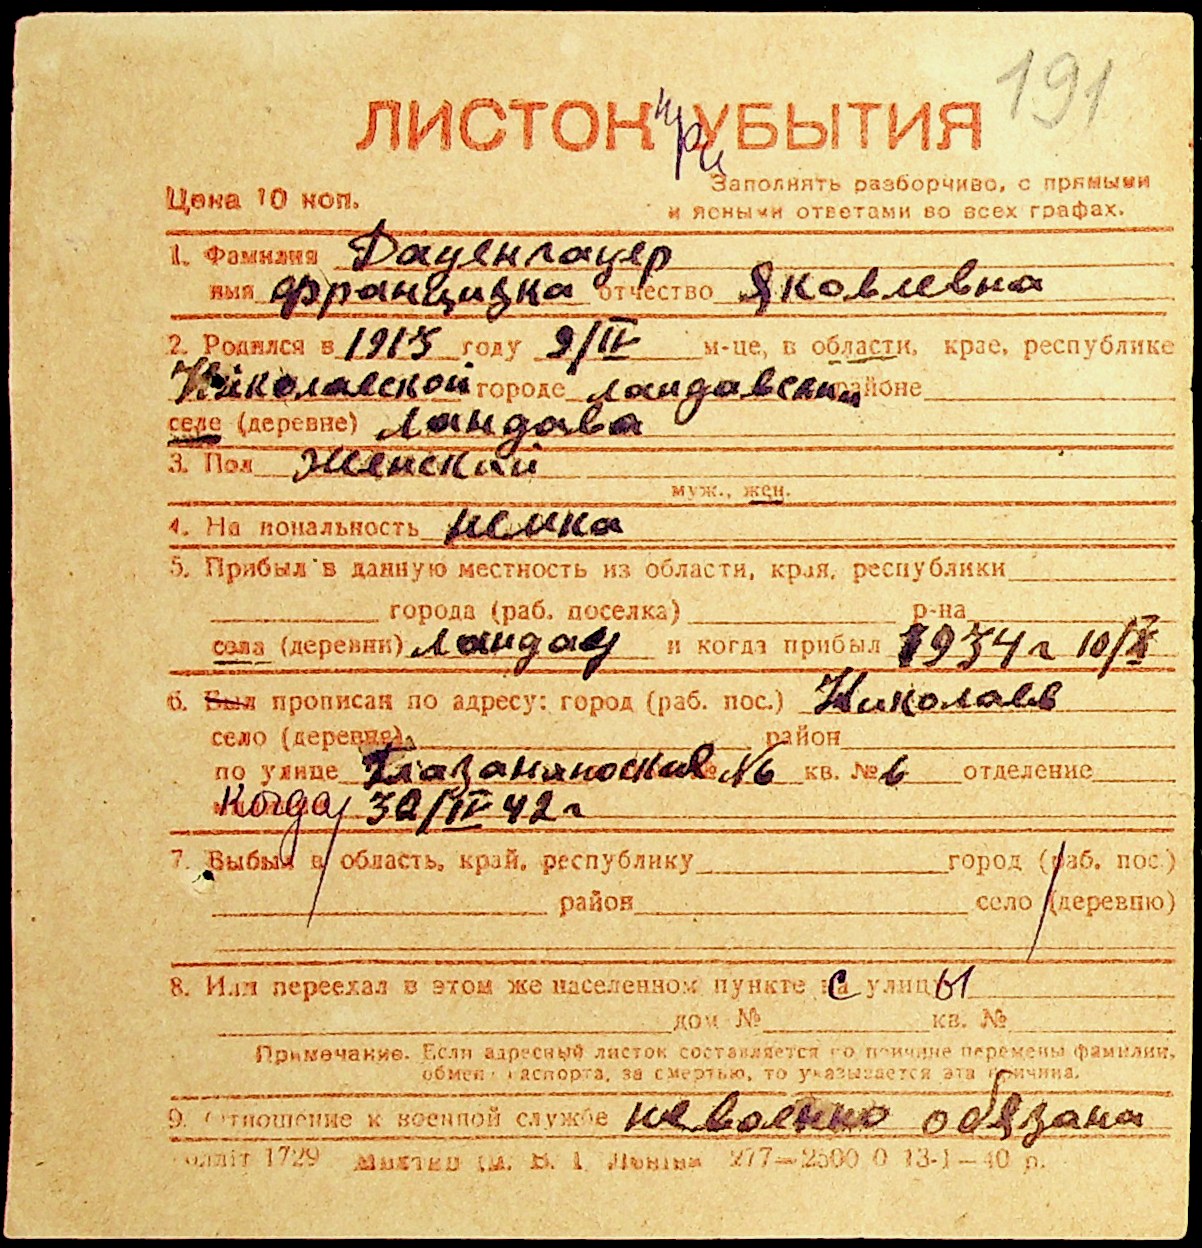 191
ЛИСТОК при УБЫТИЯ
Цена 10 коп.
Заполнять разборчиво, с прямыми
и ясными ответами во всех графах.
1. Фамилия Дауенгауер
имя Француизка отчество Яковлевна
2. Родился в 1913 году 9/IV м-це, в области, крае, республике
Николаевской городе Ландавский районе
селе (деревне) Ландава
3. Пол Женский
муж., жен.
4. Национальность немка
5. Прибыл в данную местность из области, края, республики
города (раб. поселка) р-на
села (деревни) Ландау и когда прибыл 1934 г 10/X
6. Был прописан по адресу: город (раб. пос.) Николаев
село (деревня) район
по улице № 6 кв. № 6 отделение
Когда 30/IV 42 г
7. Выбыл в область, край, республику город (раб. пос.)
район село (деревню)
8. Или переехал в этом же населенном пункте с улицы
дом № кв. №
Примечание. Если адресный листок составляется по причине перемены фамилии,
обмена паспорта, за смертью, то указывается эта причина.
9. Отношение к военной службе не военно обязана
1729 277—2500 0 13-1—40 р.